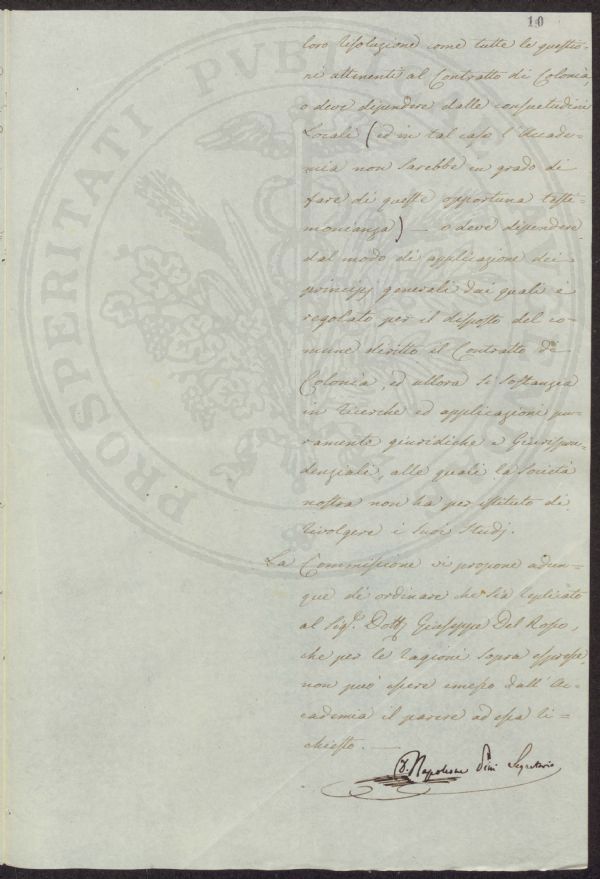 10
loro resoluzione come tutte le questio-
ni attinente al Contratto di Colonia,
o deve dipendere dalle consuetudini
Locali (ed in tal caso l'Accade-
mia non sarebbe in grado di
fare di queste opportuna testi-
monianza) — o deve dipendere
dal modo di applicazione dei
principj generali dai quali è
regolato per il disposto del co-
mune diritto il Contratto di
Colonia, ed allora si sostanzia
in ricerche ed applicazioni pu-
ramente giuridiche e Giurispru-
denziali, alle quali la Società
nostra non ha per istituto di
rivolgere i suoi studj.
La Commissione vi propone adun-
que di ordinare che sia replicato
al Sig.r Dott. Giuseppe Del Rosso,
che per le ragioni sopra espresse,
non può essere emesso dall'Ac-
cademia il parere ad essa ri-
chiesto. —
D. Napoleone Pini Segretario
PROSPERITATI PVBLICAE AVGENDAE